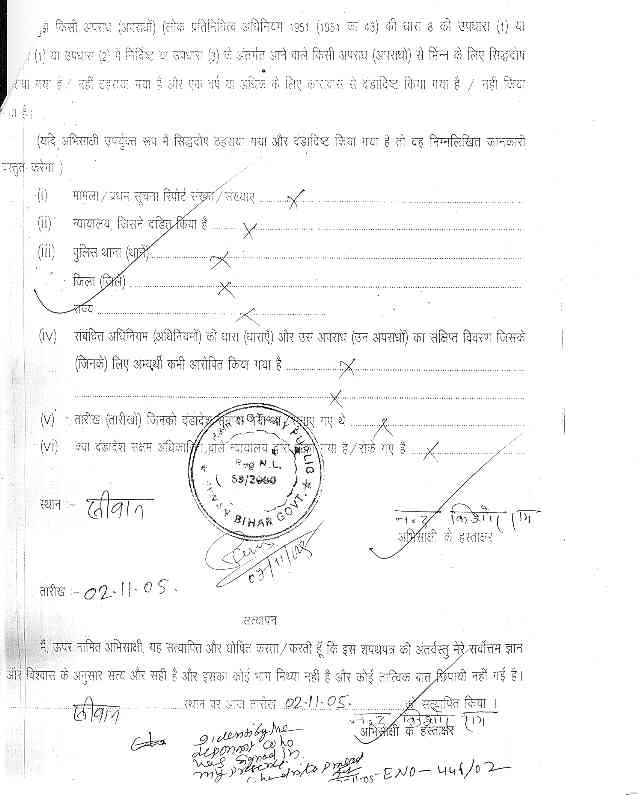 किसी अपराध (अपराधों) (लोक प्रतिनिधित्व अधिनियम 1951 (1951 का 43) की धारा 8 की उपधारा (1) या
(1) या उपधारा (2) में निर्दिष्ट या उपधारा (3) के अंतर्गत आने वाले किसी अपराध (अपराधों) से भिन्न के लिए सिद्धदोष
गया है / नहीं ठहराया गया है और एक वर्ष या अधिक के लिए कारावास से दंडादिष्ट किया गया है / नहीं किया
है।
(यदि अभिसाक्षी उपर्युक्त रूप में सिद्धदोष ठहराया गया और दंडादिष्ट किया गया है तो वह निम्नलिखित जानकारी
प्रस्तुत करेगा )
(i) मामला / प्रथम सूचना रिपोर्ट संख्या / संख्याएं X
(ii) न्यायालय, जिसने दंडित किया है X
(iii) पुलिस थाना (थाने) X
जिला (जिले) X
राज्य X
(iv) संबंधित अधिनियम (अधिनियमों) की धारा (धाराएँ) और उस अपराध (उन अपराधों) का संक्षिप्त विवरण जिसके
(जिनके) लिए अभ्यर्थी कभी आरोपित किया गया है X
X
(v) तारीख (तारीखों) जिनको दंडादेश गए थे X
(vi) क्या दंडादेश सक्षम अधिकारिता वाले न्यायालय द्वारा गया है / रोके गए हैं X
NOTARY PUBLIC
Reg N.L.
59/2000
BIHAR GOVT.
स्थान :- सीवान
नन्द किशोर राम
अभिसाक्षी के हस्ताक्षर
02/11/05
तारीख :- 02.11.05.
सत्यापन
मैं, ऊपर नामित अभिसाक्षी, यह सत्यापित और घोषित करता / करती हूँ कि इस शपथपत्र की अंतर्वस्तु मेरे सर्वोत्तम ज्ञान
और विश्वास के अनुसार सत्य और सही है और इसका कोई भाग मिथ्या नहीं है और कोई तात्विक बात छिपायी नहीं गई है।
सीवान स्थान पर आज तारीख 02.11.05. को सत्यापित किया ।
नन्द किशोर राम
अभिसाक्षी के हस्ताक्षर
I identify the
deponent who
has signed in
my presence
ENO-448/02